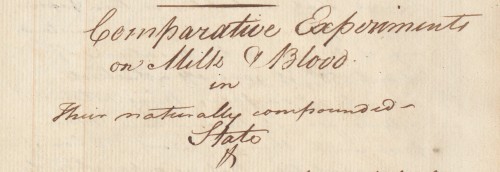 Comparative Experiments
on Milk & Blood.
in
Their naturally compounded-
State